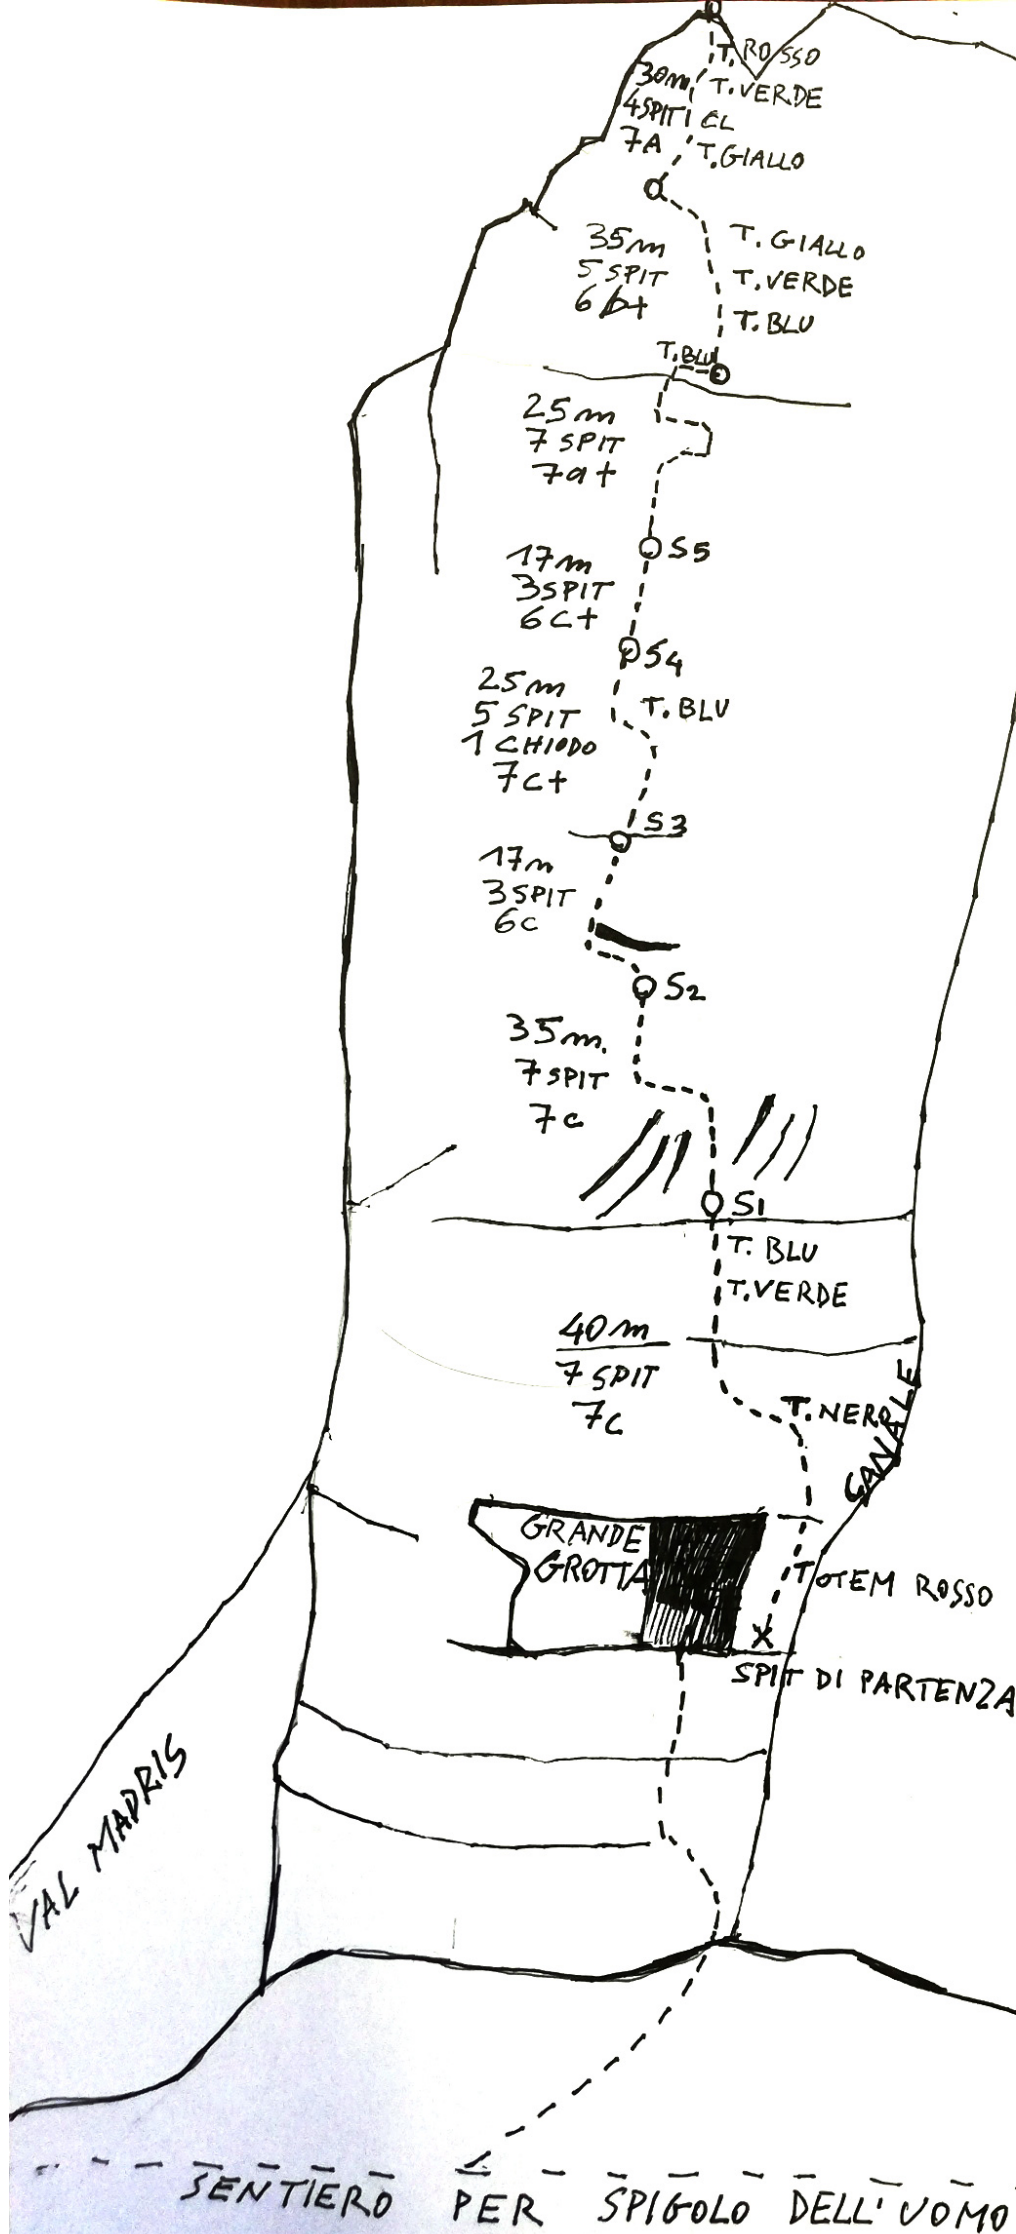 T. ROSSO
30m
T. VERDE
4 SPIT
CL
7A
T. GIALLO
35m
T. GIALLO
5 SPIT
T. VERDE
6b+
T. BLU
T. BLU
25m
7 SPIT
7a+
S5
17m
3 SPIT
6C+
S4
25m
T. BLU
5 SPIT
1 CHIODO
7C+
S3
17m
3 SPIT
6C
S2
35m.
7 SPIT
7c
S1
T. BLU
T. VERDE
40m
7 SPIT
7C
T. NERO
CANALE
GRANDE
GROTTA
TOTEM ROSSO
SPIT DI PARTENZA
VAL MADRIS
SENTIERO PER SPIGOLO DELL'UOMO